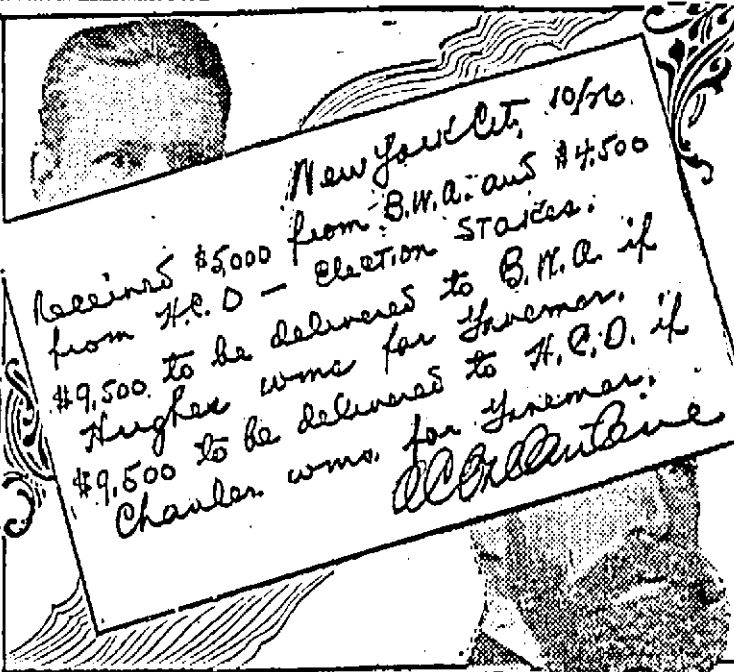 New York City, 10/26.
Received $5,000 from B.W.A. and $4,500
from H.C.D — Election Stakes.
$9,500 to be delivered to B.W.A. if
Hughes wins for Governor.
$9,500 to be delivered to H.C.D. if
Chanler wins for Governor.